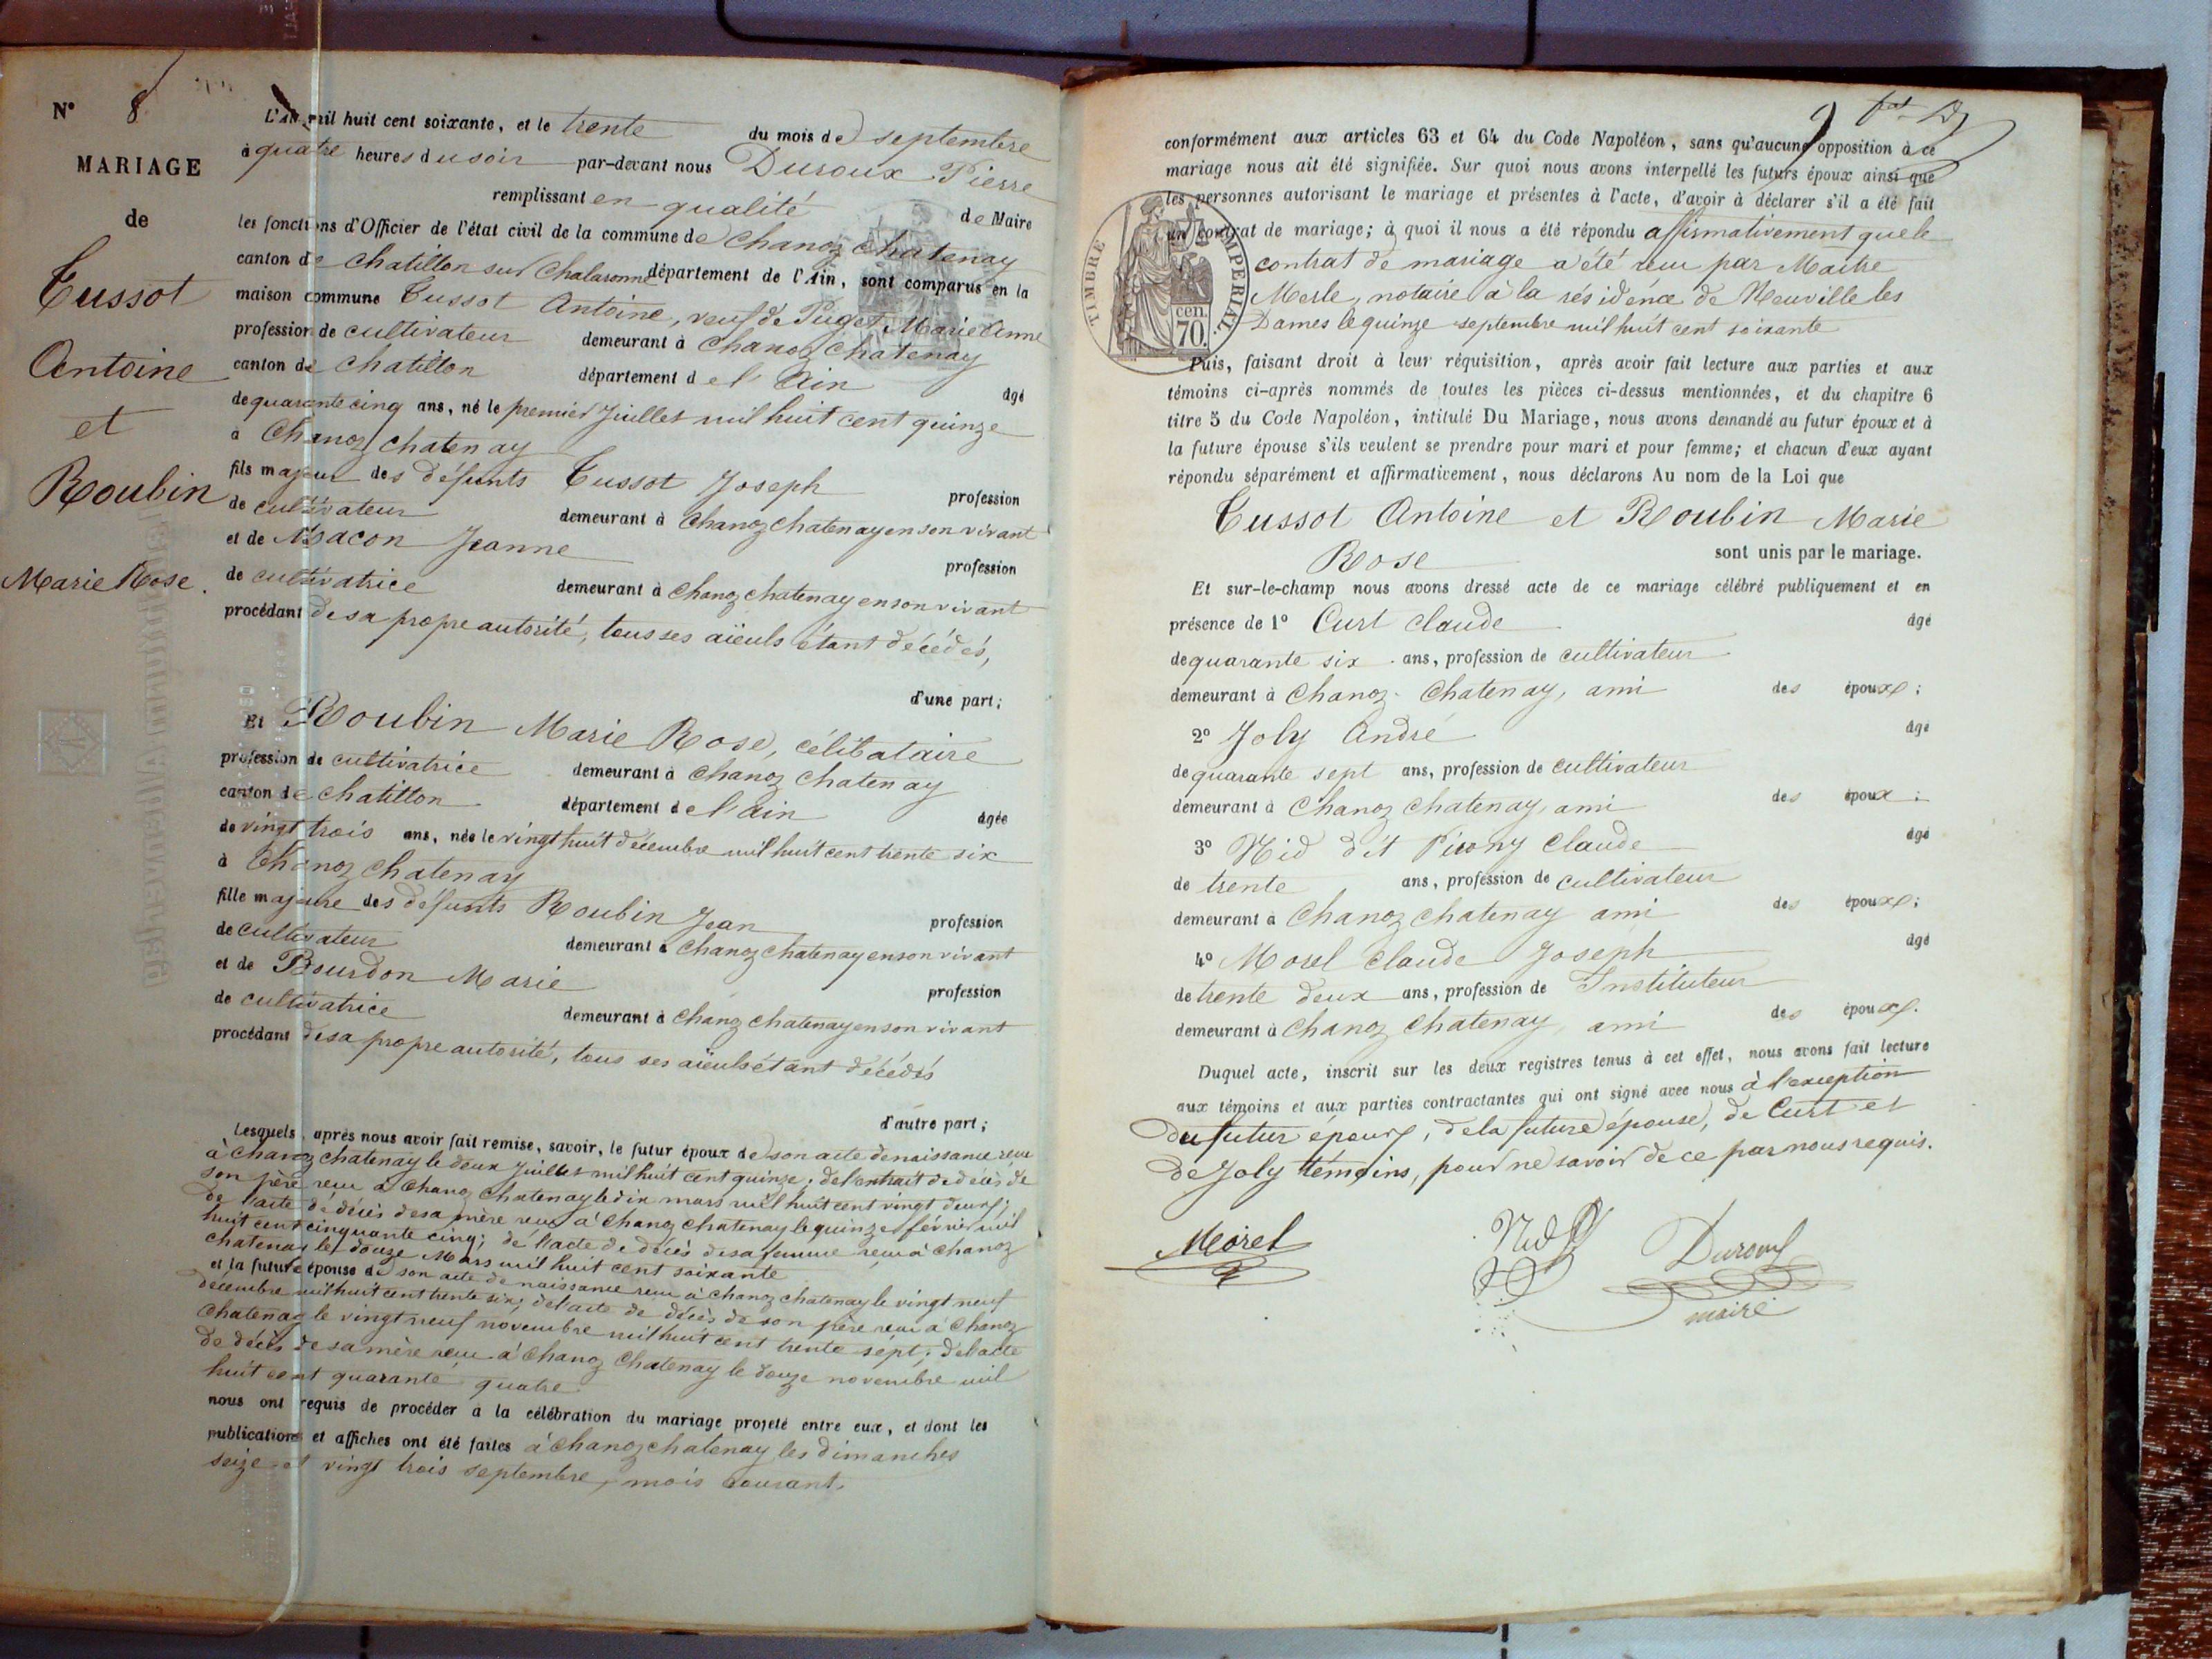 N° 8
MARIAGE
de
Tussot
Antoine
et
Roubin
Marie Rose.
L'An mil huit cent soixante, et le trente du mois de septembre
à quatre heures du soir par-devant nous Duroux Pierre
remplissant en qualité de Maire
les fonctions d'Officier de l'état civil de la commune de Chanoz chatenay
canton de Chatillon sur Chalaronne département de l'Ain, sont comparus en la
maison commune Tussot Antoine, veuf de Puget Marie Anne
profession de cultivateur demeurant à Chanoz chatenay
canton de chatillon département de l'Ain âgé
de quarante cinq ans, né le premier Juillet mil huit cent quinze
à Chanoz chatenay
fils majeur des défunts Tussot Joseph profession
de cultivateur demeurant à Chanoz chatenay en son vivant
et de Macon Jeanne profession
de cultivatrice demeurant à Chanoz chatenay en son vivant
procédant de sa propre autorité, tous ses aïeuls étant décédés,
d'une part;
Et Roubin Marie Rose, célibataire
profession de cultivatrice demeurant à Chanoz chatenay
canton de chatillon département de l'ain âgée
de vingt trois ans, née le vingt huit décembre mil huit cent trente six
à Chanoz chatenay
fille majeure des défunts Roubin Jean profession
de cultivateur demeurant à Chanoz chatenay en son vivant
et de Bourdon Marie profession
de cultivatrice demeurant à Chanoz chatenay en son vivant
procédant de sa propre autorité, tous ses aïeuls étant décédés
d'autre part;
Lesquels, après nous avoir fait remise, savoir, le futur époux de son acte de naissance reçu
à Chanoz chatenay le deux Juillet mil huit cent quinze; de l'extrait de décès de
son père reçu à Chanoz chatenay le dix mars mil huit cent vingt deux;
de l'acte de décès de sa mère reçu à Chanoz chatenay le quinze février mil
huit cent cinquante cinq; de l'acte de décès de sa femme reçu à Chanoz
chatenay le douze Mars mil huit cent soixante
et la future épouse de son acte de naissance reçu à Chanoz chatenay le vingt neuf
décembre mil huit cent trente six; de l'acte de décès de son père reçu à Chanoz
Chatenay le vingt neuf novembre mil huit cent trente sept; de l'acte
de décès de sa mère reçu à Chanoz Chatenay le douze novembre mil
huit cent quarante quatre
nous ont requis de procéder à la célébration du mariage projeté entre eux, et dont les
publications et affiches ont été faites à Chanoz chatenay les dimanches
seize et vingt trois septembre, mois courant.
conformément aux articles 63 et 64 du Code Napoléon, sans qu'aucune opposition à ce
mariage nous ait été signifiée. Sur quoi nous avons interpellé les futurs époux ainsi que
les personnes autorisant le mariage et présentes à l'acte, d'avoir à déclarer s'il a été fait
un contrat de mariage; à quoi il nous a été répondu affirmativement que le
contrat de mariage a été reçu par Maitre
Merle, notaire à la résidence de Neuville les
Dames le quinze septembre mil huit cent soixante
TIMBRE IMPERIAL.
cen.
70.
Puis, faisant droit à leur réquisition, après avoir fait lecture aux parties et aux
témoins ci-après nommés de toutes les pièces ci-dessus mentionnées, et du chapitre 6
titre 5 du Code Napoléon, intitulé Du Mariage, nous avons demandé au futur époux et à
la future épouse s'ils veulent se prendre pour mari et pour femme; et chacun d'eux ayant
répondu séparément et affirmativement, nous déclarons Au nom de la Loi que
Tussot Antoine et Roubin Marie
Rose sont unis par le mariage.
Et sur-le-champ nous avons dressé acte de ce mariage célébré publiquement et en
présence de 1° Curt Claude âgé
de quarante six ans, profession de cultivateur
demeurant à Chanoz Chatenay, ami des époux;
2° Joly André âgé
de quarante sept ans, profession de cultivateur
demeurant à Chanoz chatenay, ami des époux;
3° Nid dit Picony Claude âgé
de trente ans, profession de cultivateur
demeurant à Chanoz chatenay ami des époux;
4° Morel Claude Joseph âgé
de trente deux ans, profession de Instituteur
demeurant à Chanoz chatenay ami des époux.
Duquel acte, inscrit sur les deux registres tenus à cet effet, nous avons fait lecture
aux témoins et aux parties contractantes qui ont signé avec nous à l'exception
du futur époux, de la future épouse, de Curt et
de Joly témoins, pour ne savoir de ce par nous requis.
Morel
Nid
Duroux
maire